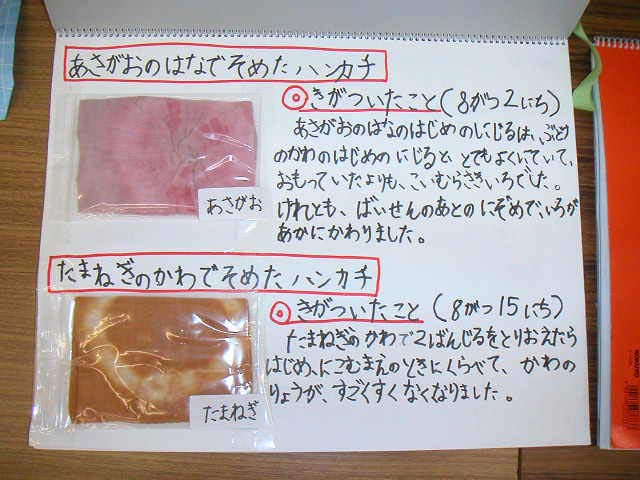 あさがおのはなでそめたハンカチ
◎きがついたこと(8がつ2にち)
あさがおのはなのはじめのにじるは、ぶどう
のかわのはじめのにじると、とてもよくにていて、
おもっていたよりも、こいむらさきいろでした。
けれども、ばいせんのあとのにぞめで、いろが
あかにかわりました。
あさがお
たまねぎのかわでそめたハンカチ
◎きがついたこと(8がつ15にち)
たまねぎのかわで2ばんじるをとりおえたら
はじめ、にこむまえのときにくらべて、かわの
りょうが、すごくすくなくなりました。
たまねぎ